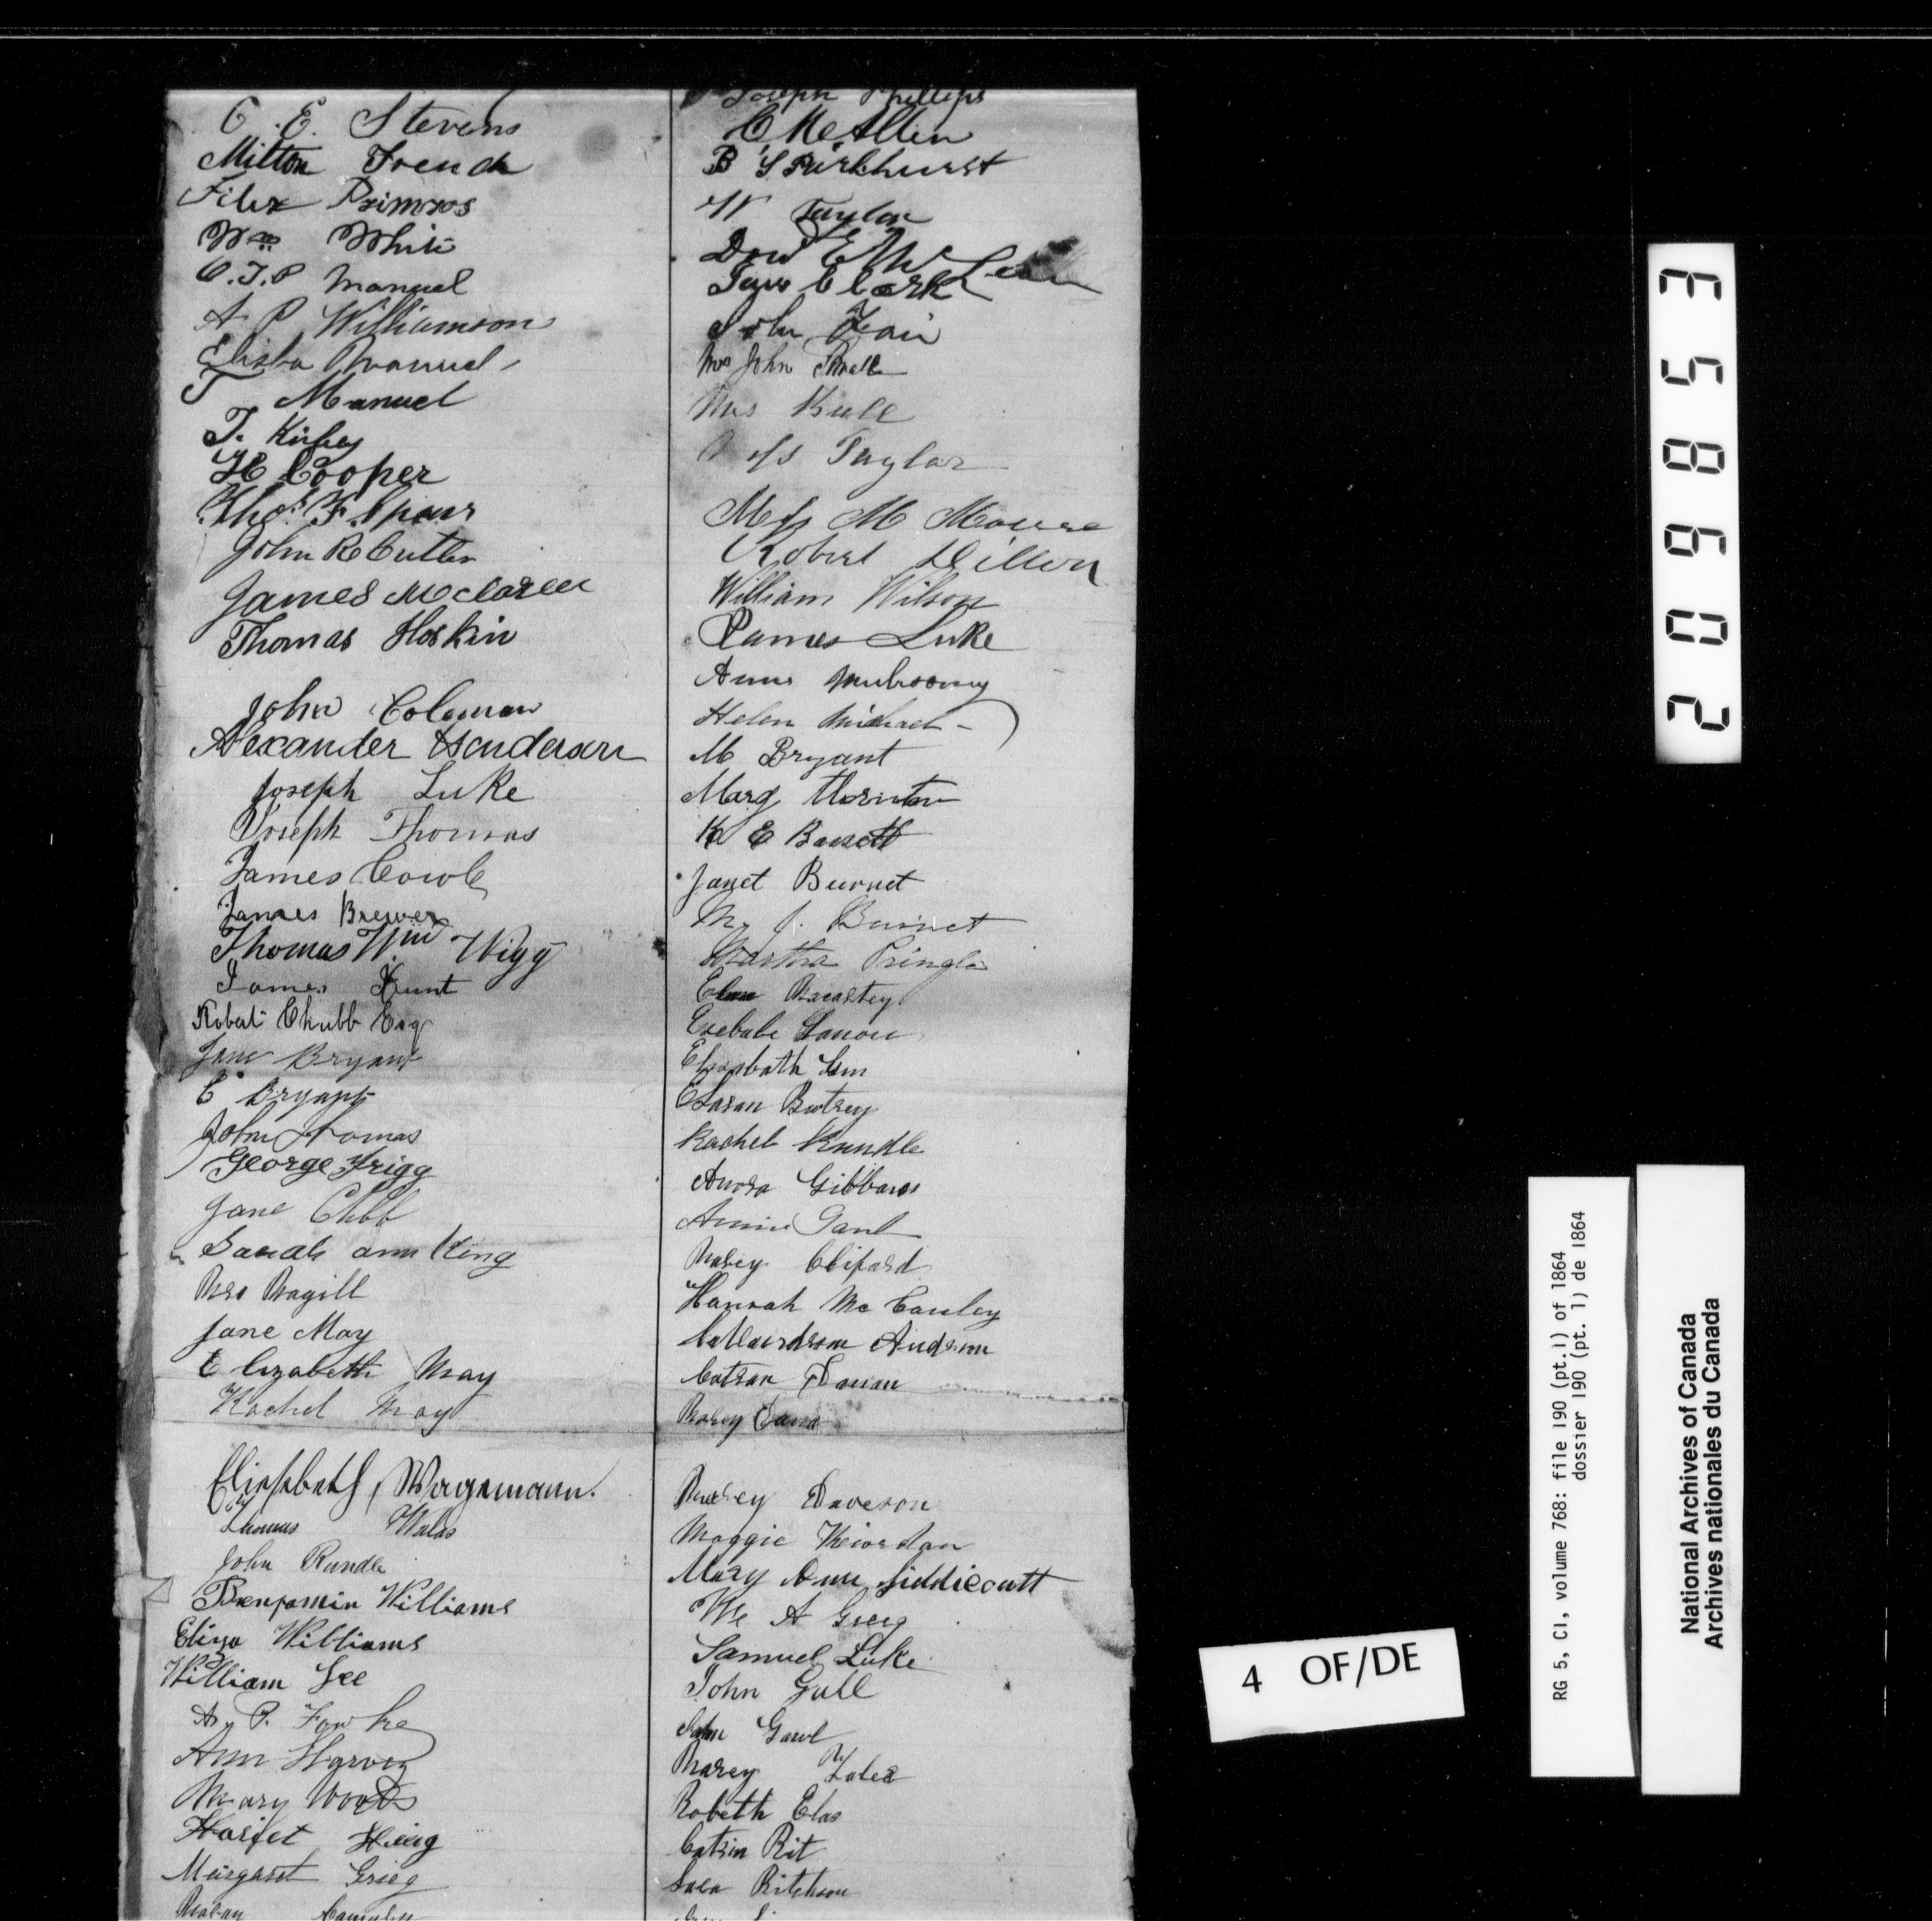 C. E. Stevens
Milton French
Filex Primros
Wm White
C.T.P Manuel
A P Williamson
Elisba Manuel
T Manuel
T. Kirby
H Cooper
Thos. F. Spears
John R Cutler
James McClaren
Thomas Hoskin
John Coleman
Alexander Henderson
Joseph Luke
Joseph Thomas
James Cowle
James Brewer
Thomas Wm Wigg
James Hunt
Robert Chubb Esq
Jane Bryant
C Bryant
John Thomas
George Trigg
Jane Chbb
Sarah ann King
Mrs Magill
Jane May
Elizabeth May
Rachel May
Eliesebeth Wagemann.
Thomas Walas
John Rundle
Benjamin Williams
Eliza Williams
William Lee
A. P. Fowke
Ann Harvey
Mary Woods
Harjet Heig
Margaret Grieg
Joseph Phillips
C McAllin
B S Parkhurst
W Taylor
Clark
John
Mrs John
Mrs Kull
Taylor
M
Robert Dillon
William Wilson
James Luke
Anne
Helen Michael
M Bryant
Marg Thornton
K E Bassett
Janet Burnet
J. Burnet
Martha Pringle
Elen Macartey
Elizabeth
Susan Butrey
Rachel Rundle
Anora Gibbons
Annie Gant
Marey Cliford
Hannah McCauley
Anderson
Catran
Marey
Marey Daveson
Maggie Riordan
Mary Ann Siddicoutt
A Grieg
Samuel Luke
John Gall
John Gawl
Marey
Robeth Elas
Catrin Rit
Sara Ritchson
20985 3
4 OF/DE
RG 5, C1, volume 768: file 190 (pt.1) of 1864
dossier 190 (pt. 1) de 1864
National Archives of Canada
Archives nationales du Canada